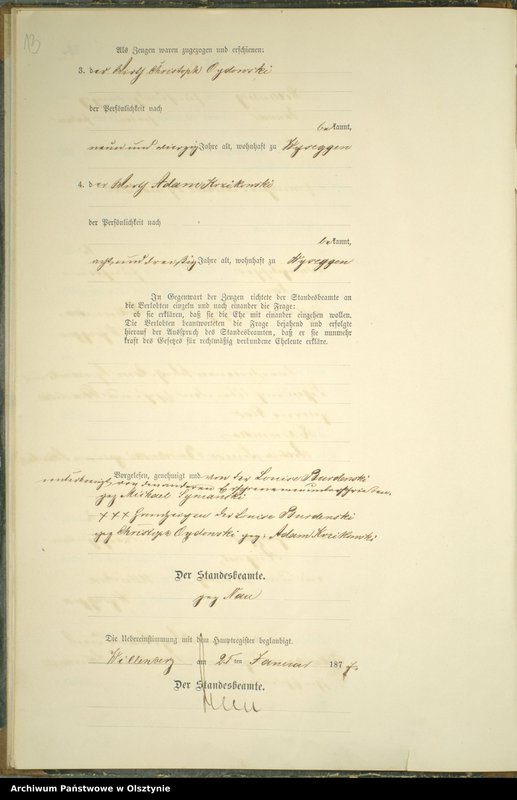 13
Als Zeugen waren zugezogen und erschienen:
3. der Christoph Cydowski
der Persönlichkeit nach
bekannt,
neun und vierzig Jahre alt, wohnhaft zu Wyseggen
4. der Adam Krzikowski
der Persönlichkeit nach
bekannt,
acht und dreißig Jahre alt, wohnhaft zu Wyseggen
In Gegenwart der Zeugen richtete der Standesbeamte an
die Verlobten einzeln und nach einander die Frage:
ob sie erklären, daß sie die Ehe mit einander eingehen wollen.
Die Verlobten beantworteten die Frage bejahend und erfolgte
hierauf der Ausspruch des Standesbeamten, daß er sie nunmehr
kraft des Gesetzes für rechtmäßig verbundene Eheleute erkläre.
Vorgelesen, genehmigt und von der Louise Burdenski
unterkreuzt, von den anderen Erschienenen unterschrieben.
gez Michael Symanski
+++ Handzeichen der Louise Burdenski
gez Christoph Cydowski gez: Adam Krzikowski
Der Standesbeamte.
gez Nau
Die Uebereinstimmung mit dem Hauptregister beglaubigt.
Willenberg am 25 ten Januar 1877
Der Standesbeamte.
Nau
Archiwum Państwowe w Olsztynie